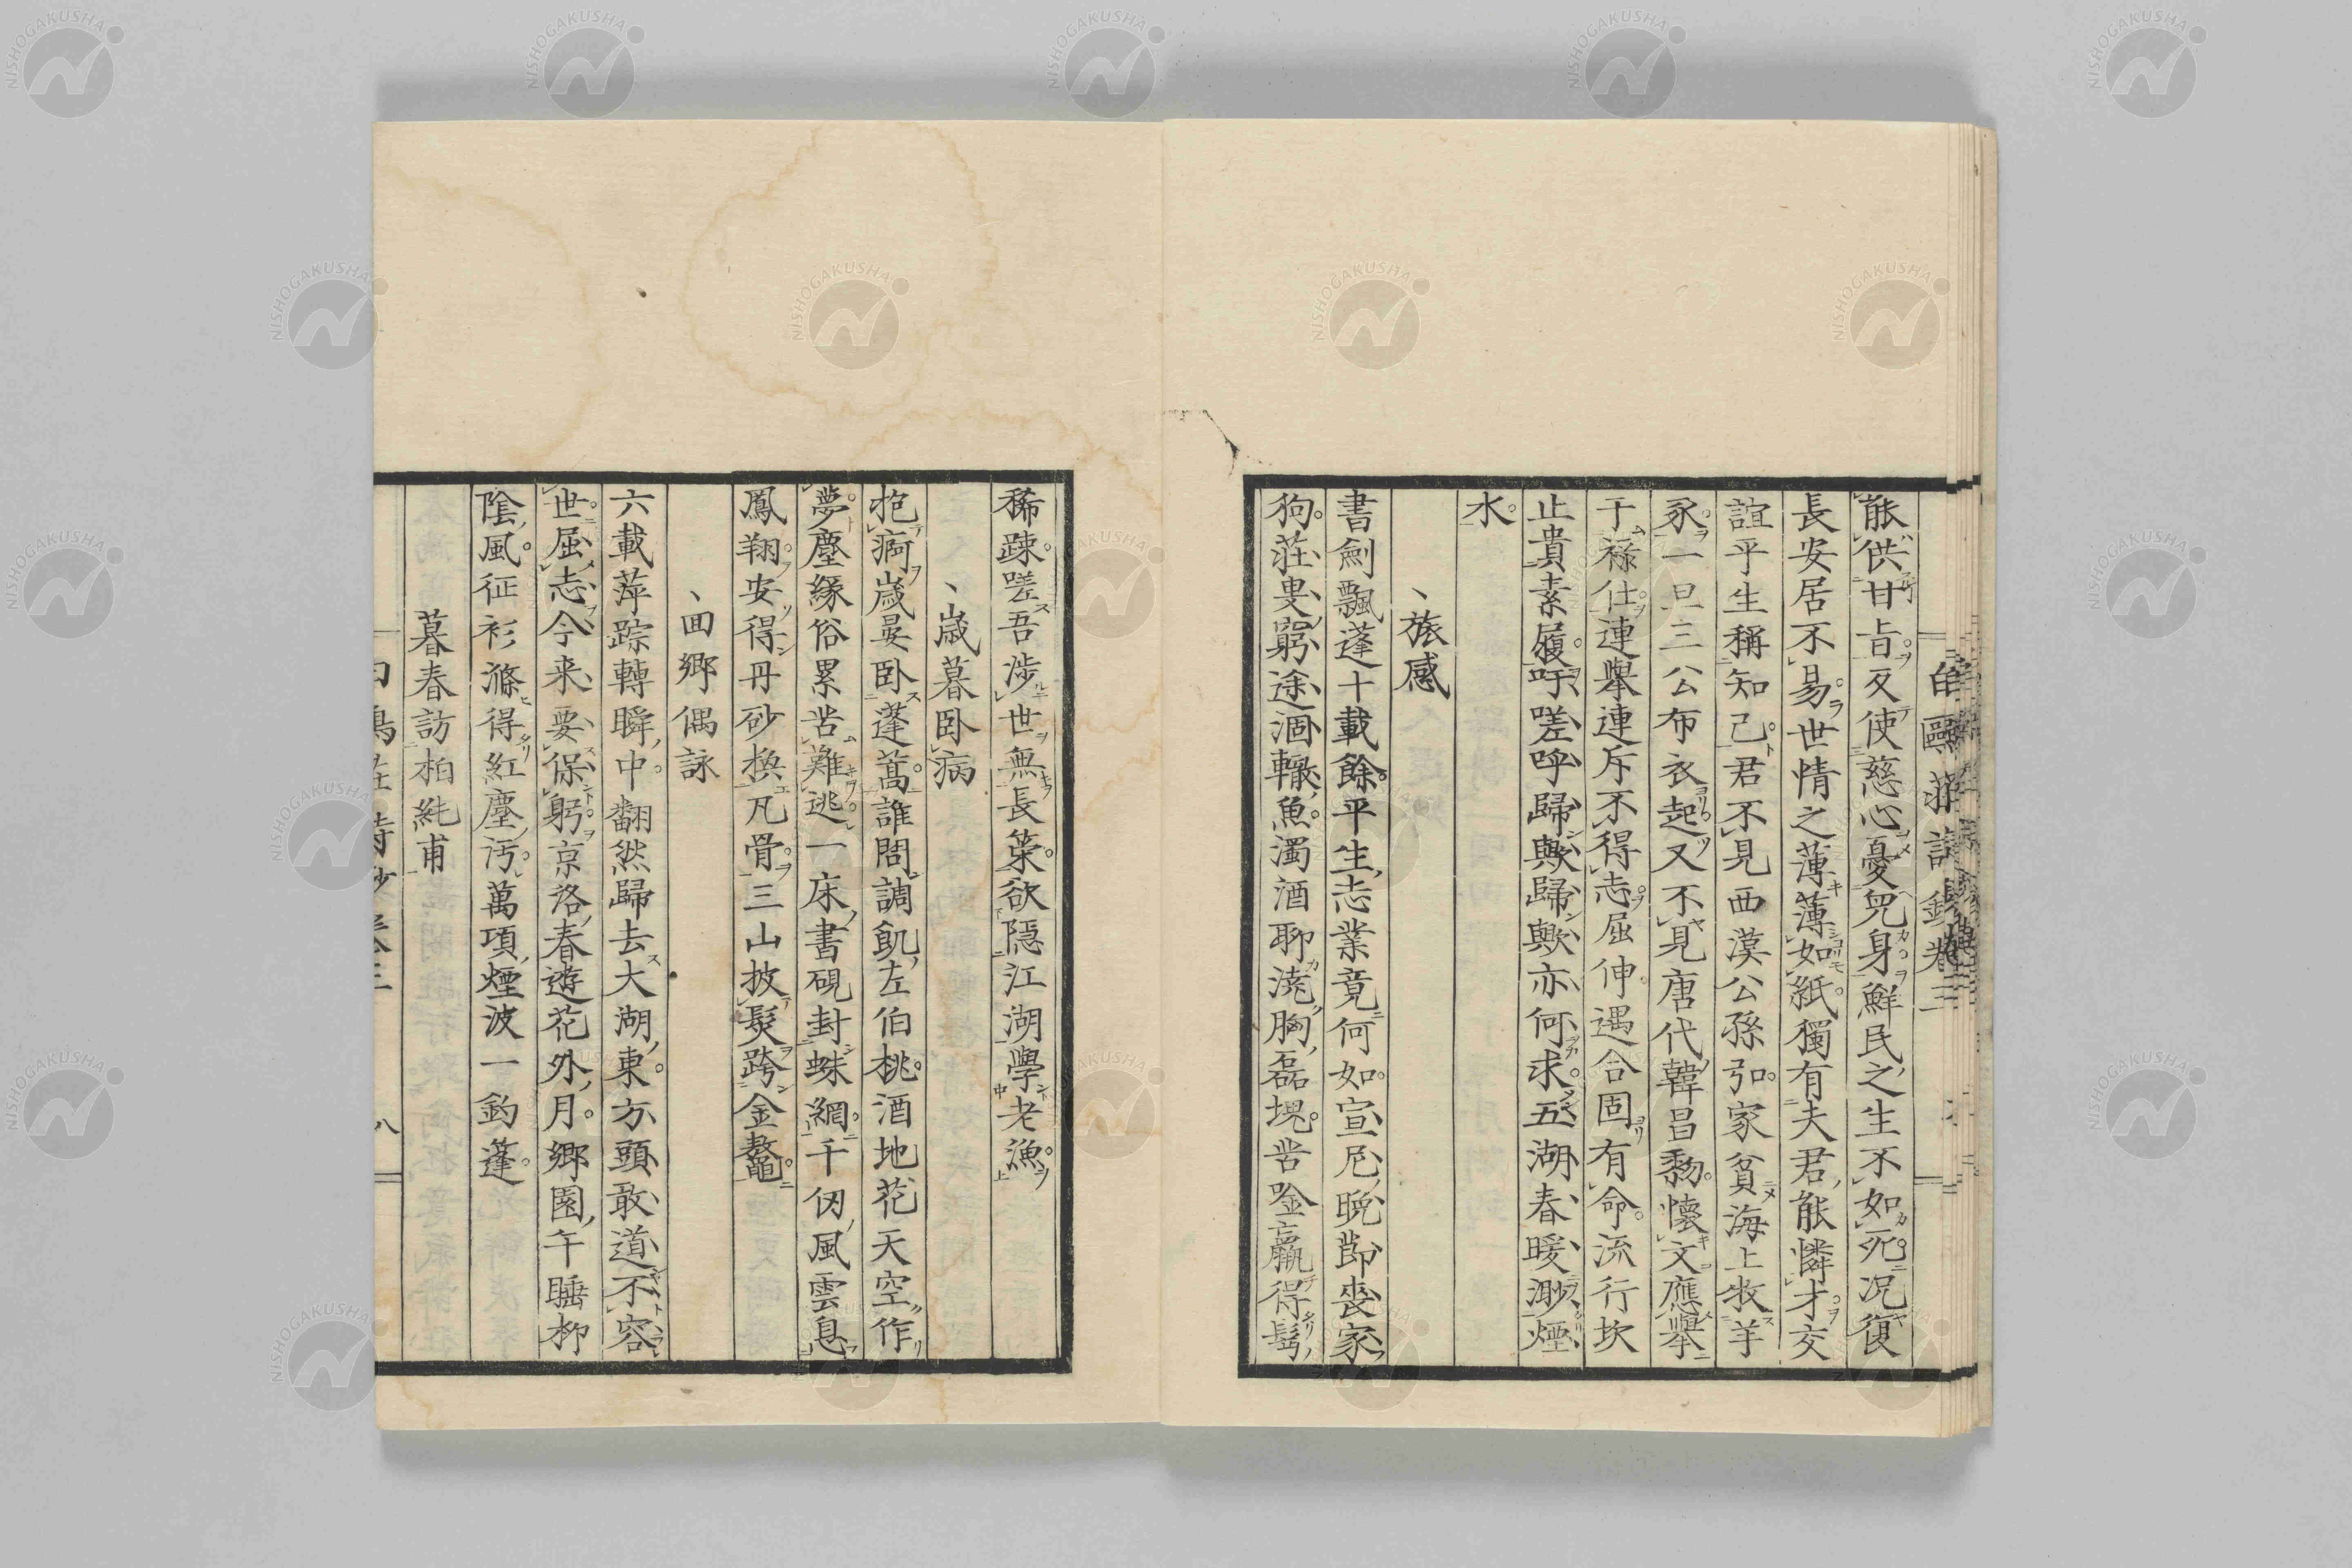 白鷗莊詩鈔卷三
能供甘旨又使慈心憂兒身鮮民之生不如死況復
長安居不易世情之薄薄如紙獨有夫君能憐才交
誼平生稱知己君不見西漢公孫弘家貧海上牧羊
豕一旦三公布衣起又不見唐代韓昌黎懷文應舉
干祿仕連舉連斥不得志屈伸遇合固有命流行坎
止貴素履吁嗟呼歸歟歸歟亦何求五湖春暖渺煙
水
旅感
書劍飄蓬十載餘平生志業竟何如宣尼晚節喪家
狗莊叟窮途涸轍魚濁酒聊澆胸磊塊苦唫贏得髩
稀踈嗟吾涉世無長策欲隱江湖學老漁
歲暮臥病
抱痾歲晏臥蓬蒿誰問調飢左伯桃酒地花天空作
夢塵緣俗累苦難逃一床書硯封蛛網千仞風雲息
鳳翔安得丹砂換凡骨三山披髮跨金鼇
回鄉偶詠
六載萍踪轉瞬中翻然歸去大湖東方頭敢道不容
世屈志今来要保躬京洛春遊花外月鄉園午睡柳
陰風征衫滌得紅塵污萬項煙波一釣篷
暮春訪柏純甫
白鳥莊詩鈔卷三 八